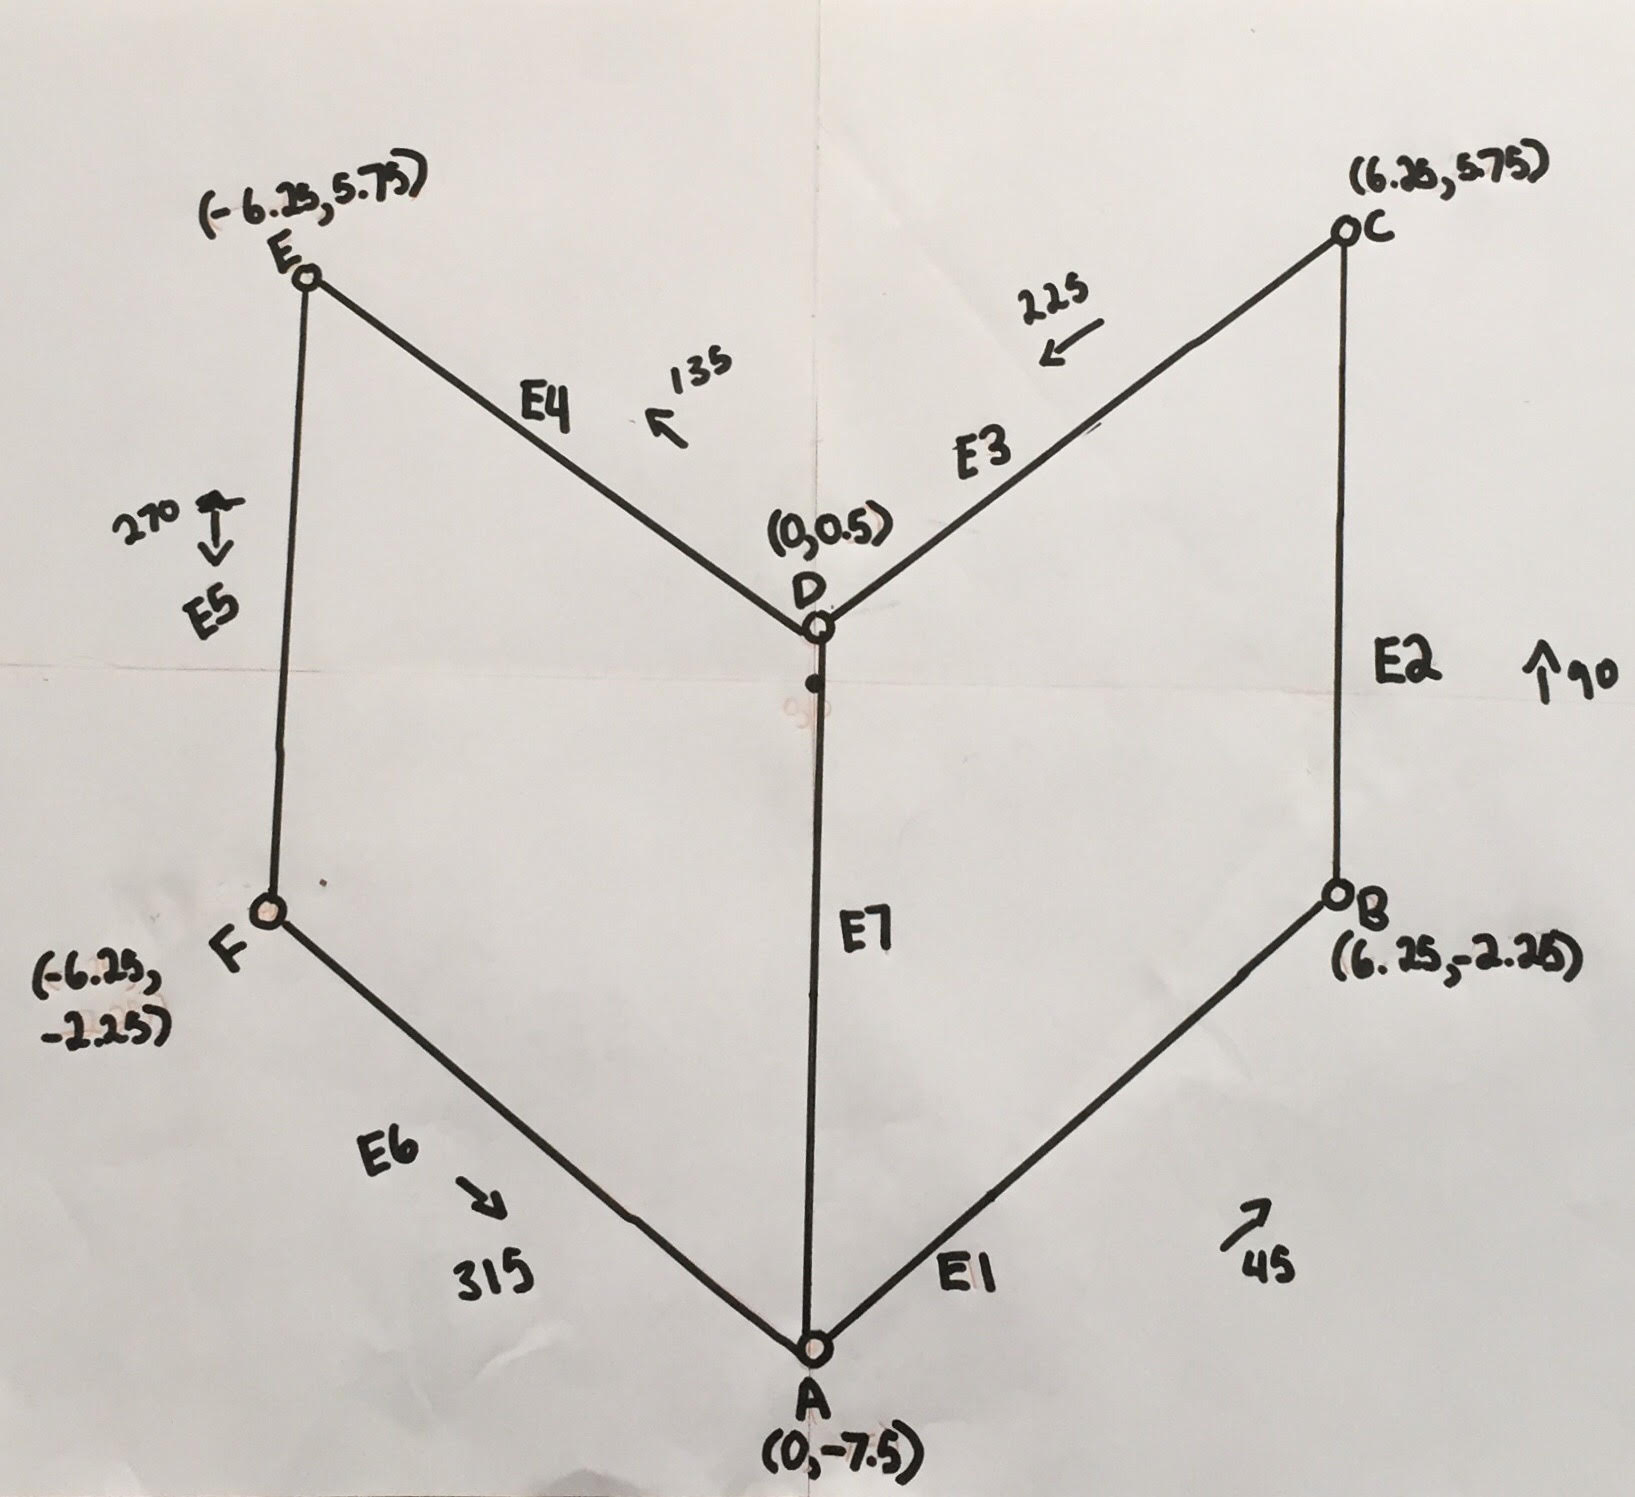 (-6.25,5.75)
E
(6.25,5.75)
C
225
135
E4
E3
(0,0.5)
D
270
E5
E2
90
E7
F
(-6.25,
-2.25)
B
(6.25,-2.25)
E6
315
E1
45
A
(0,-7.5)